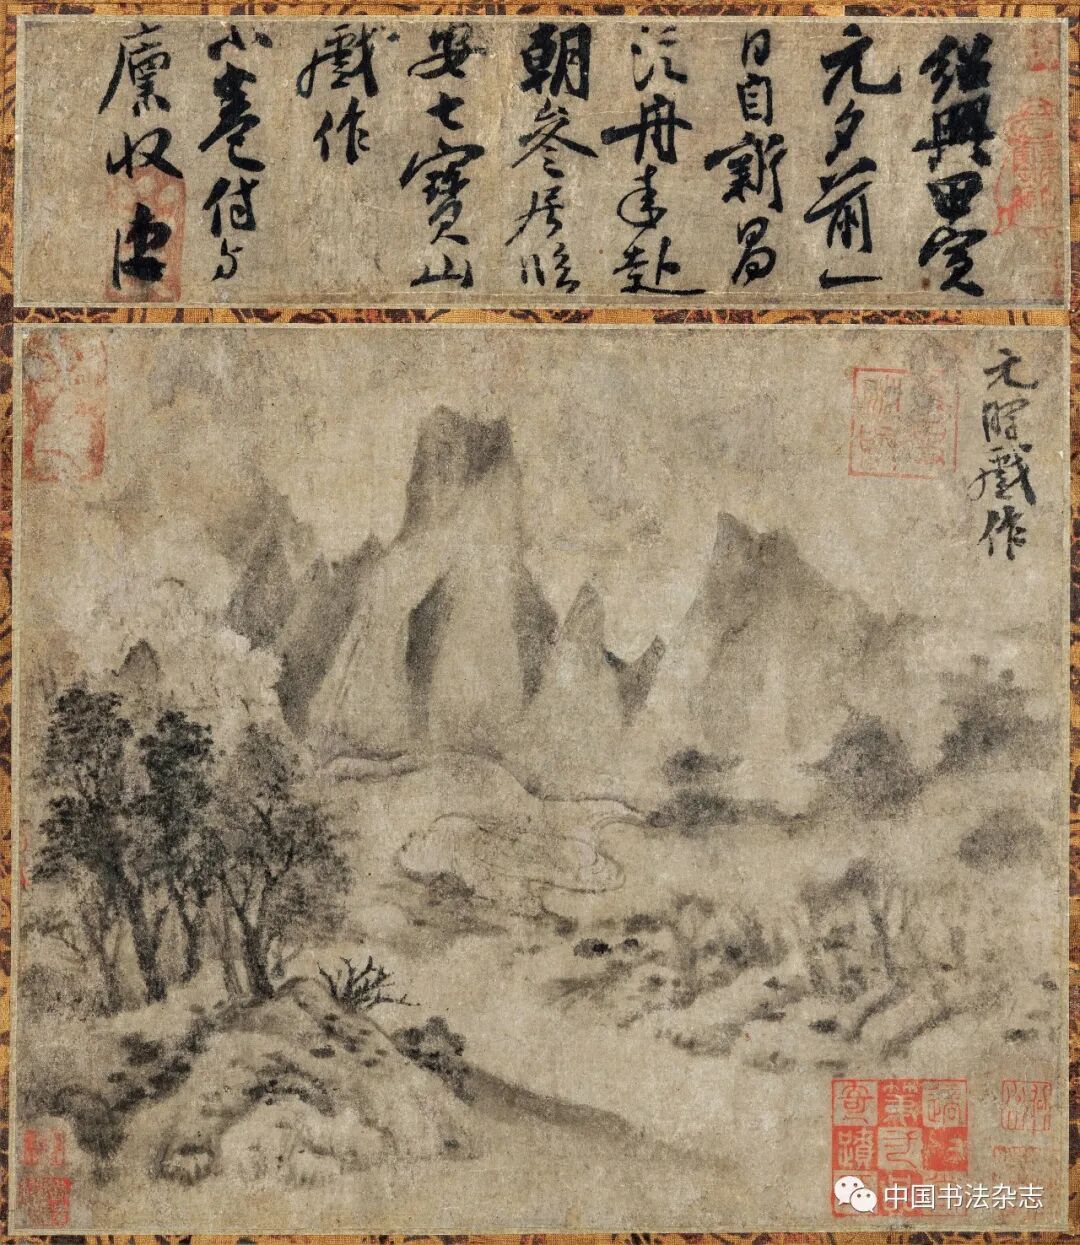 紹興甲寅
元夕前一
日自新昌
泛舟来赴
朝參居臨
安七寶山
戲作
小卷付与
廩收
元暉戲作
中国书法杂志